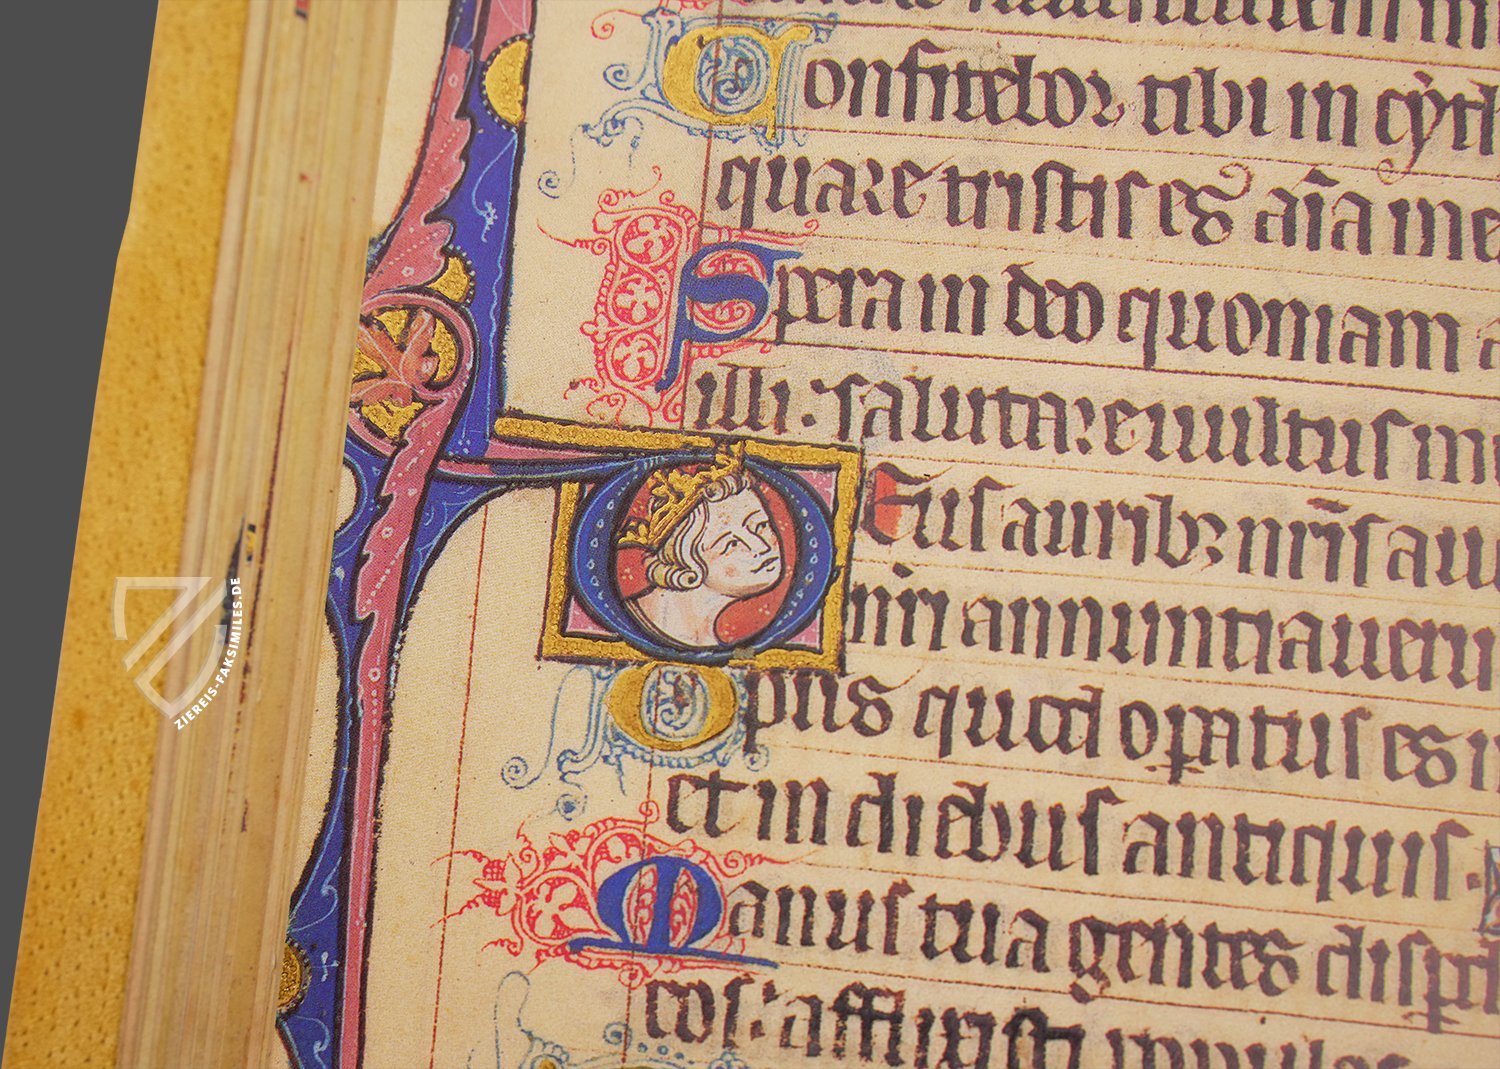 Confitebor tibi in cyth
quare tristis es aīa me
Spera in deo quoniam a
illi: salutare uultus m
Deus auribꝫ nr̄is au
nr̄i annuntiaueru
Opus quod opatus es i
et in diebus antiquis.
Manus tua gentes disp
eos: afflixisti populos
ZIEREIS-FAKSIMILES.DE